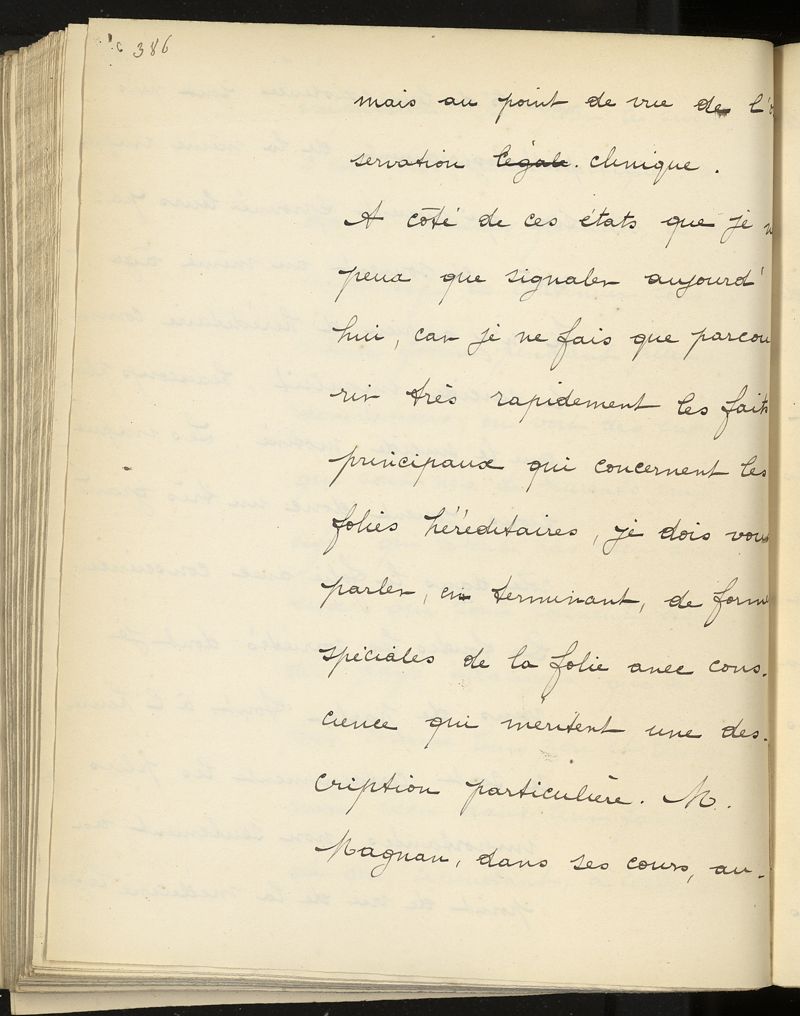 386
mais au point de vue de l'o
servation légale. clinique.
A côté de ces états que je n
peux que signaler aujourd'
hui, car je ne fais que parcou
rir très rapidement les faits
principaux qui concernent les
folies héréditaires, je dois vous
parler, en terminant, de forme
spéciales de la folie avec cons-
cience qui méritent une des-
cription particulière. M.
Magnan, dans ses cours, au-